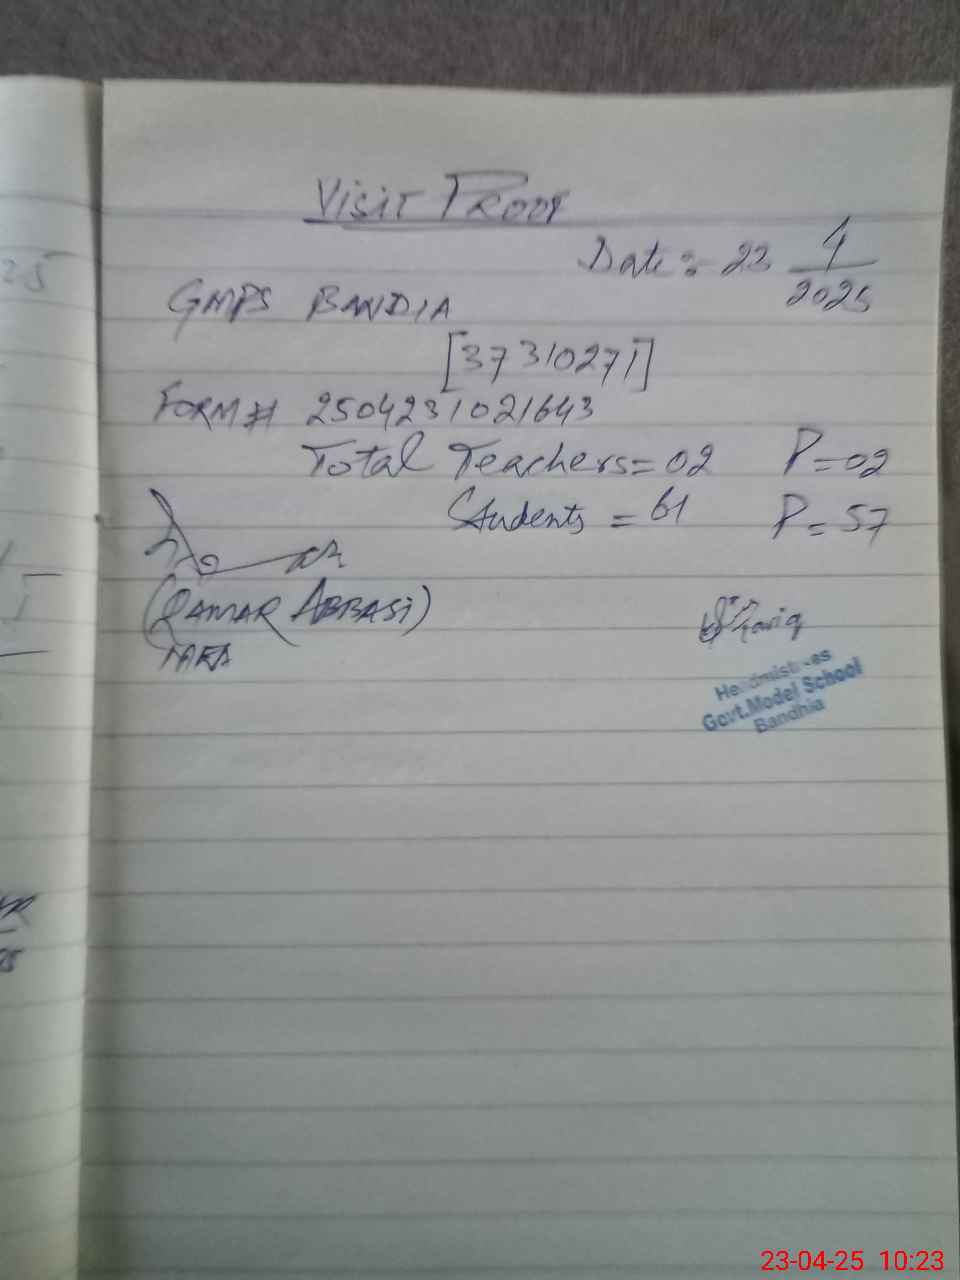 Visit Proof
Date:- 23 4/2025
GMPS BANDIA
[37310271]
Form# 2504231021643
Total Teachers= 02 P=02
Students = 61 P=57
(QAMAR ABBASI)
MEA
Headmistress
Govt.Model School
Bandhia
25
23-04-25 10:23